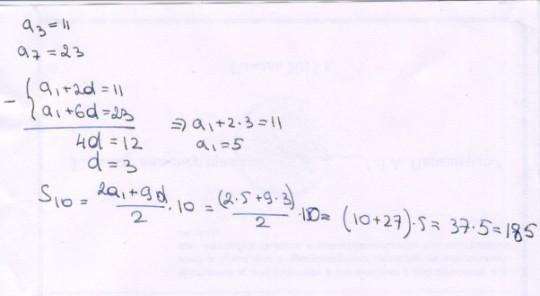 a₃ = 11
a₇ = 23
- { a₁ + 2d = 11
a₁ + 6d = 23
4d = 12 ⇒ a₁ + 2·3 = 11
d = 3 a₁ = 5
S₁₀ = (2a₁ + 9d)/2 · 10 = (2·5 + 9·3)/2 · 10 = (10 + 27)·5 = 37·5 = 185